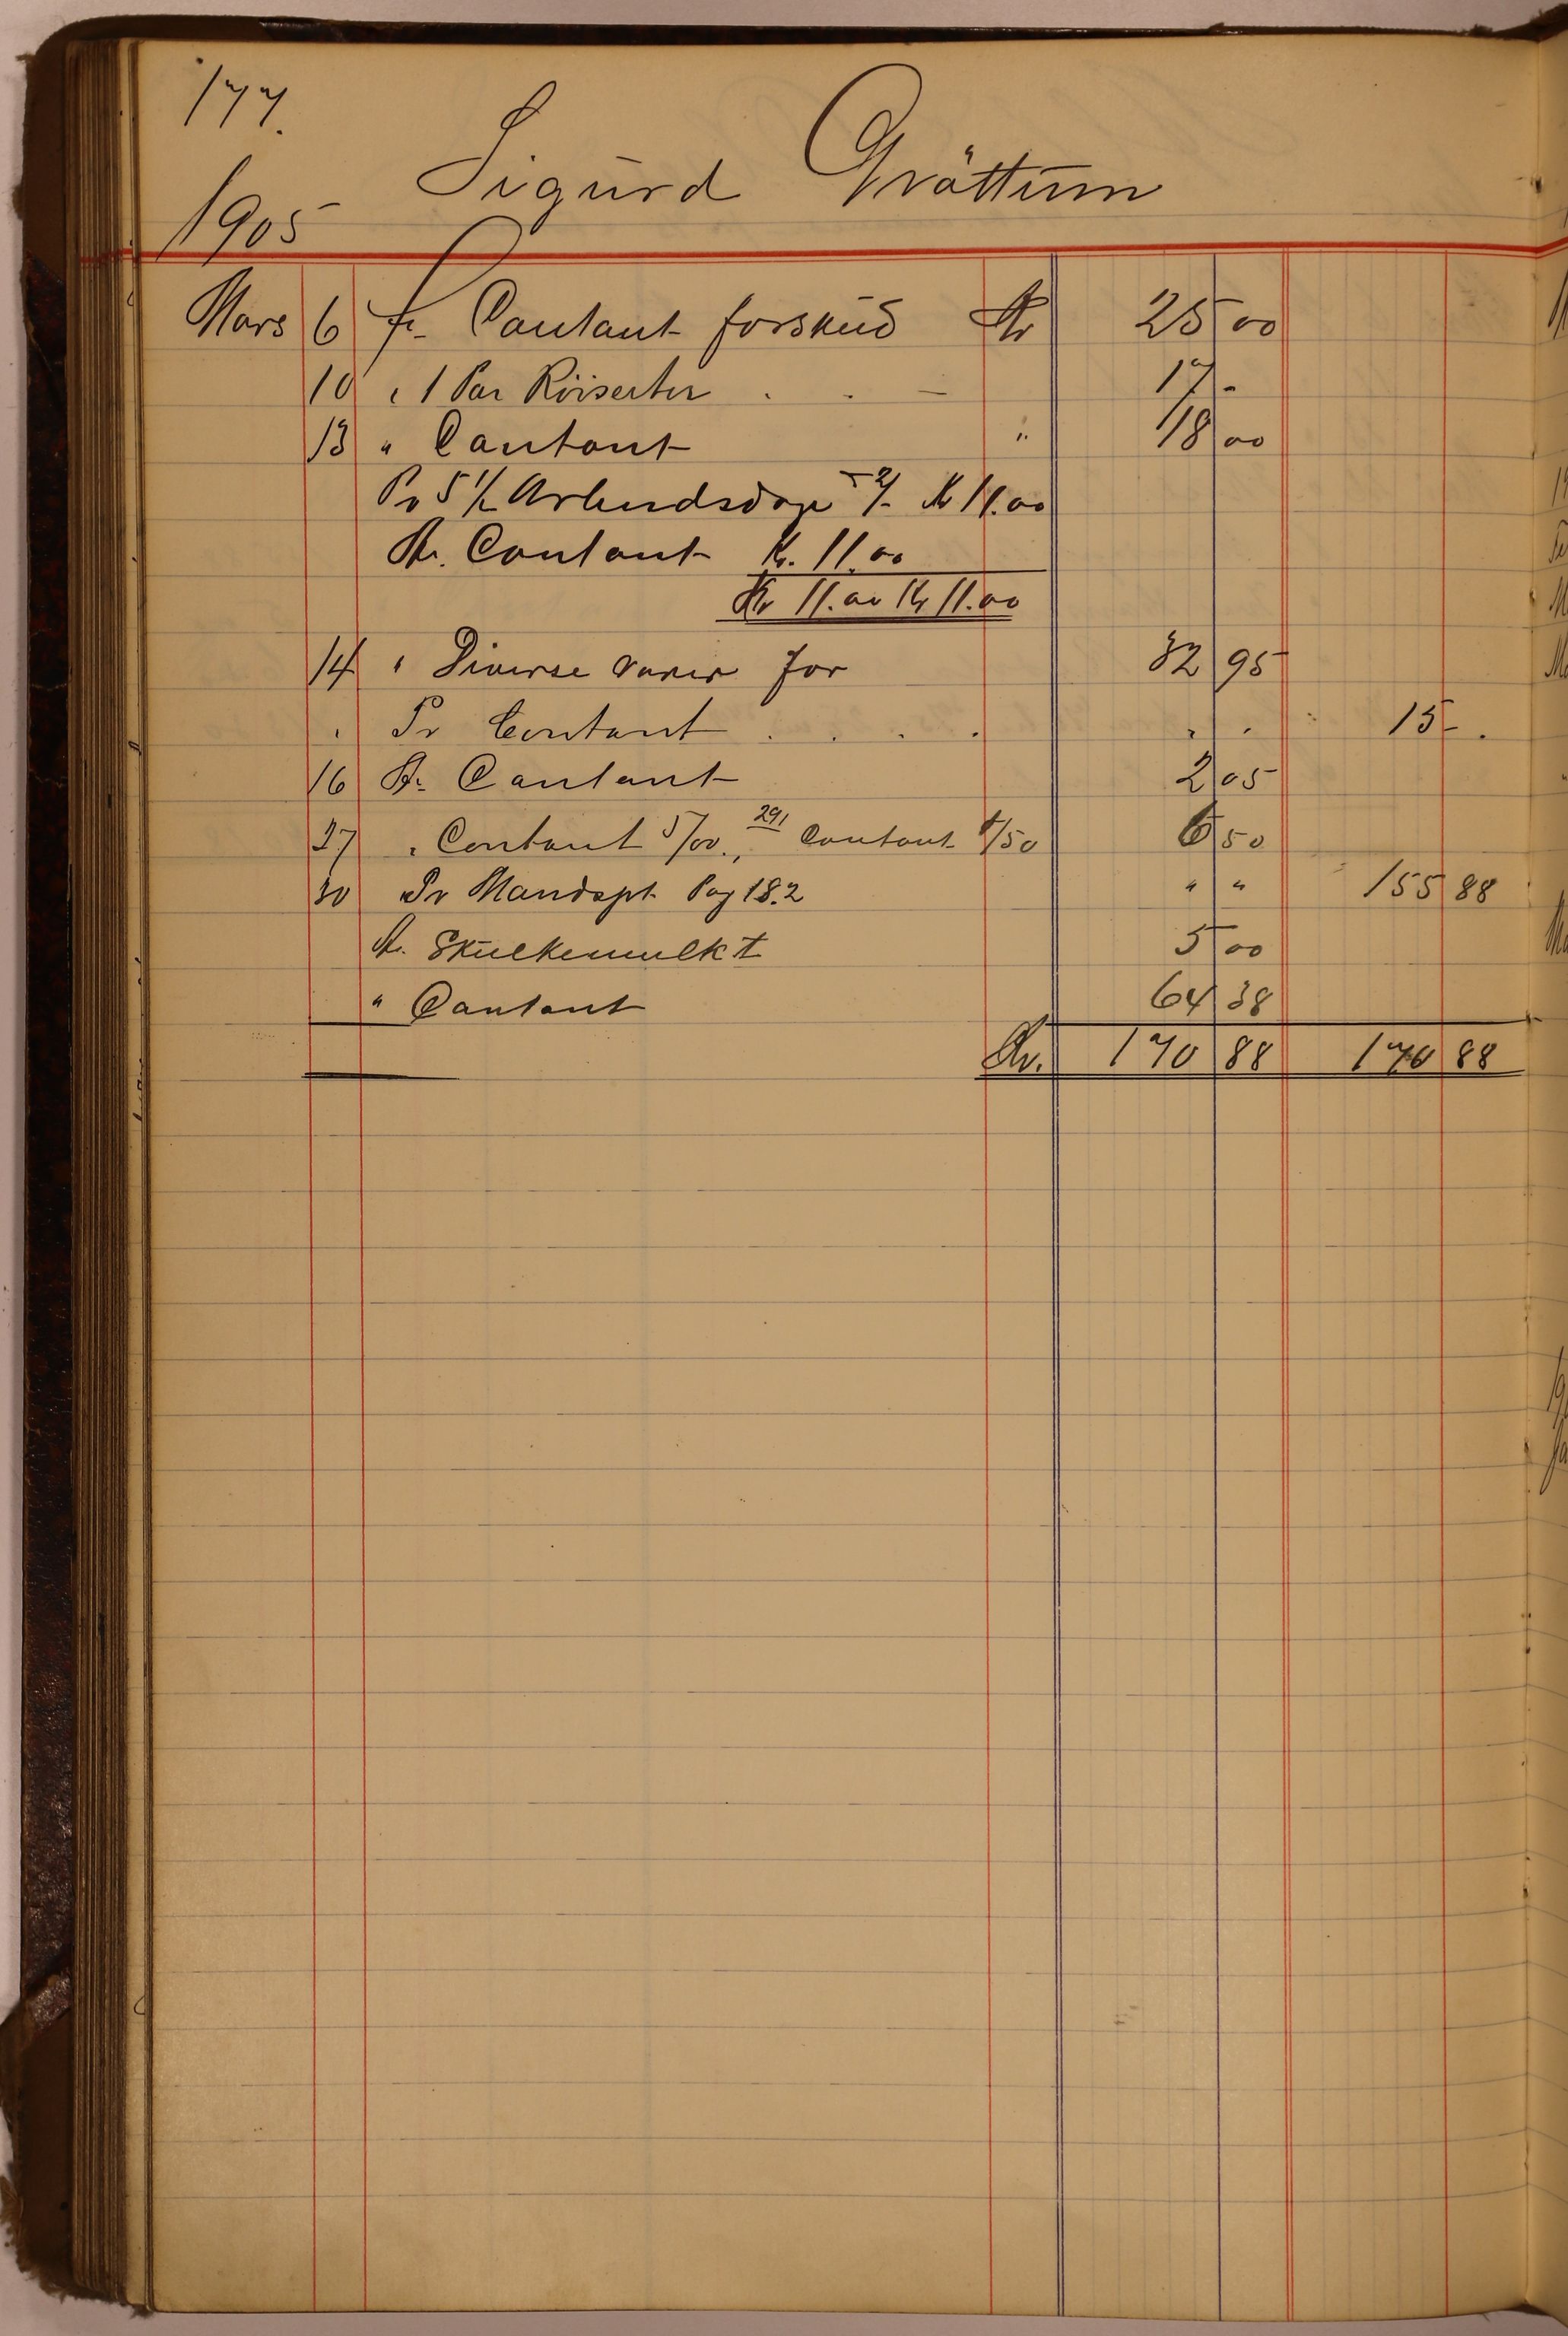 177.
Sigurd Gråttum
1905
Mars 6 Fr. Contant forskud Kr 25 00
10 " 1 Par Röiserter . . — 17 -
13 " Contant " 18 00
Pr 5 1/2 Arbeidsdage 2/- Kr 11.00
Fr. Contant Kr. 11.00
Kr 11.00 Kr 11.00
14 " Diverse varer for 32 95
" Pr Contant . . . . " " 15 - .
16 Fr. Contant 2 05
27 " Contant 5/00., 29/ Contant 1/50 6 50
30 Pr Mandspt. Pag 182 " " 155 88
Fr. Skulkemulkt 5 00
" Contant 64 38
Kr. 170 88 170 88